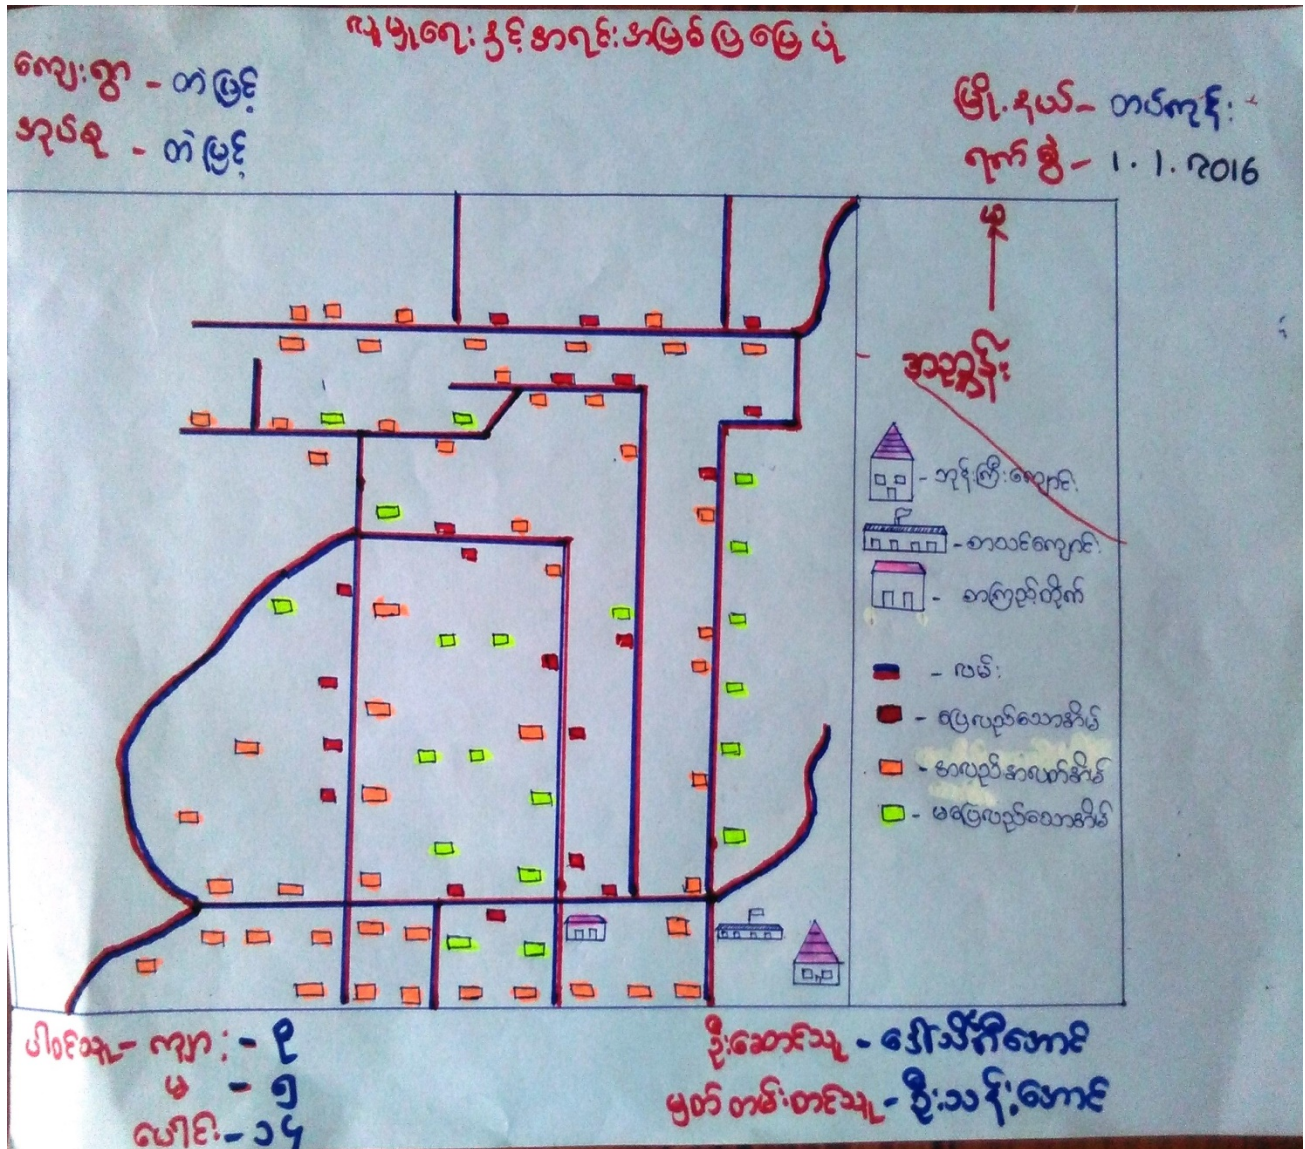 လူမှုရေးနှင့်အရင်းအမြစ်ပြမြေပုံ
ကျေးရွာ - တဲမြင့်
အုပ်စု - တဲမြင့်
မြို့နယ် - တပ်ကုန်း
ရက်စွဲ - 1.1.2016
အညွှန်း
- ဘုန်းကြီးကျောင်း
- စာသင်ကျောင်း
- စာကြည့်တိုက်
- လမ်း
- ပြေလည်သောအိမ်
- အလည်အလတ်အိမ်
- မပြေလည်သောအိမ်
ပါဝင်သူ - ကျား - ၉
မ - ၅
ပေါင်း - ၁၄
ဦးဆောင်သူ - ဒေါ်သီတာအောင်
မှတ်တမ်းတင်သူ - ဦးသန့်အောင်